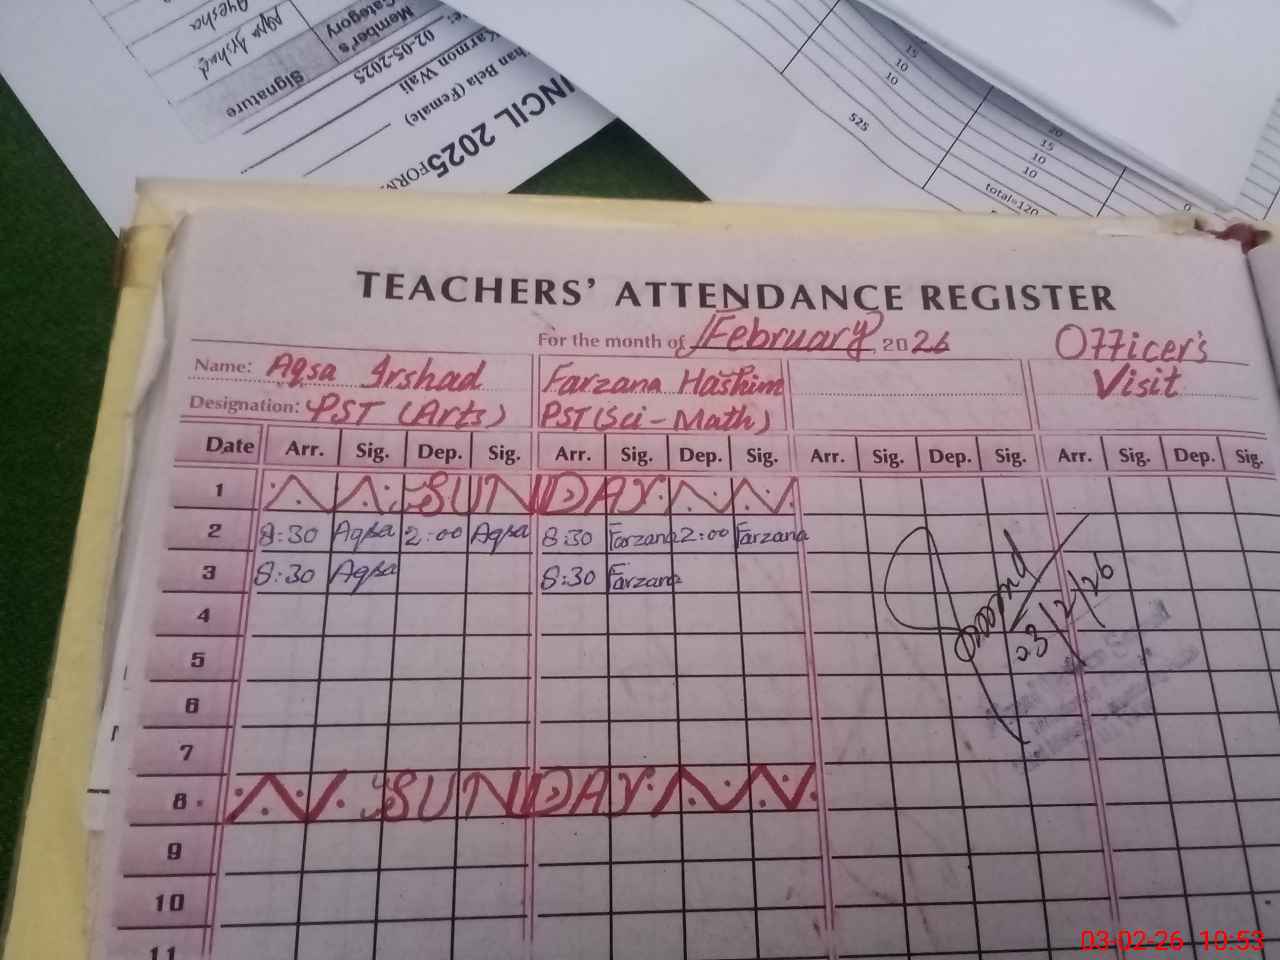 NCIL 2025
FORM
han Bela (Female)
Karmon Wali
02-05-2025
Member's
Category
Signature
Aqsa Irshad
Ayesha
15
10
10
525
20
15
10
10
total=120
0
TEACHERS' ATTENDANCE REGISTER
For the month of February 2026
Officer's
Visit
Name: Aqsa Irshad Farzana Hashim
Designation: PST (Arts) PST (Sci-Math)
Date Arr. Sig. Dep. Sig. Arr. Sig. Dep. Sig. Arr. Sig. Dep. Sig. Arr. Sig. Dep. Sig.
1 SUNDAY
2 8:30 Aqsa 2:00 Aqsa 8:30 Farzana 2:00 Farzana
3 8:30 Aqsa 8:30 Farzana
4
5
6
7
8 SUNDAY
9
10
11
03/2/26
03-02-26 10:53